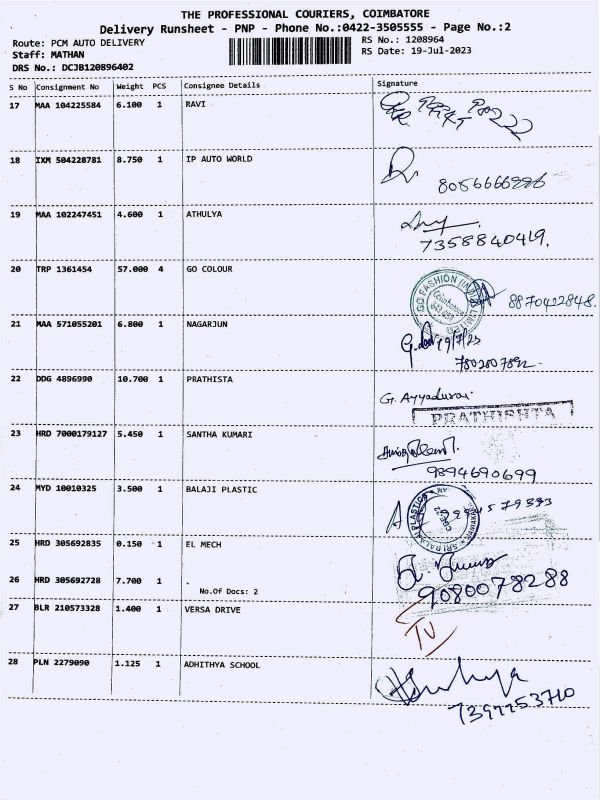 THE PROFESSIONAL COURIERS, COIMBATORE
Delivery Runsheet - PNP - Phone No.:0422-3505555 - Page No.:2
Route: PCM AUTO DELIVERY
RS No.: 1208964
Staff: MATHAN
RS Date: 19-Jul-2023
DRS No.: DCJB120896402
S No Consignment No Weight PCS Consignee Details Signature
17 MAA 104225584 6.100 1 RAVI
18 IXM 504228781 8.750 1 IP AUTO WORLD
19 MAA 102247451 4.600 1 ATHULYA
7358840419.
20 TRP 1361454 57.000 4 GO COLOUR
GO FASHION LIMITED
8870422848.
21 MAA 571055201 6.800 1 NAGARJUN
19/7/23
22 DDG 4896990 10.700 1 PRATHISTA
G. Ayyadurai
PRATHISHTA
23 HRD 7000179127 5.450 1 SANTHA KUMARI
9894690699
24 MYD 10010325 3.500 1 BALAJI PLASTIC
SRI BALAJI PLASTICS
25 HRD 305692835 0.150 1 EL MECH
26 HRD 305692728 7.700 1 .
No.Of Docs: 2
9080078288
27 BLR 210573328 1.400 1 VERSA DRIVE
28 PLN 2279090 1.125 1 ADHITHYA SCHOOL